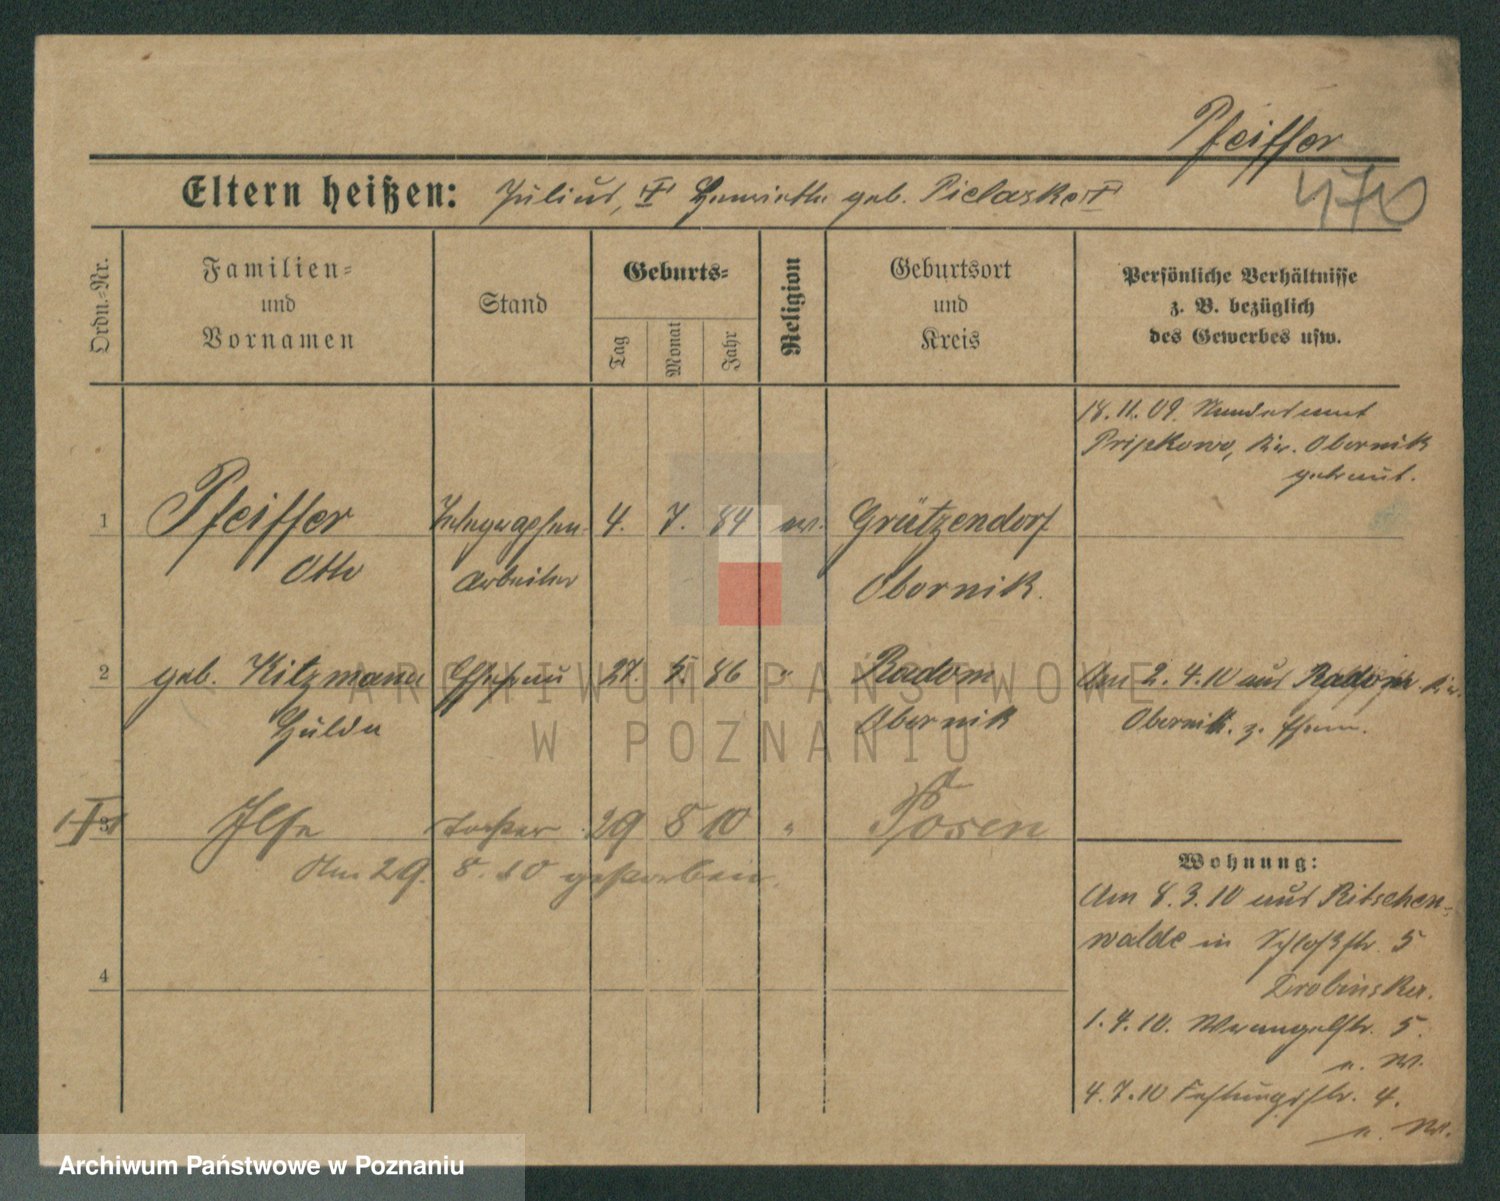 Pfeiffer
470
Eltern heißen: Julius, Henriette geb. Pielaske
Ordn.-Nr.
Familien-
und
Vornamen
Stand
Geburts-
Tag
Monat
Jahr
Religion
Geburtsort
und
Kreis
Persönliche Verhältnisse
z. B. bezüglich
des Gewerbes usw.
18. 11. 09. Standesamt
Kr. Obornik
getraut.
1 Pfeiffer Telegraphen- 4. 7. 84 ev. Grützendorf
Otto Arbeiter Obornik.
2 geb. Kitzmann Ehefrau 27. 5. 86 " Radom Am 2. 4. 10 aus Radom Kr.
Hulda Obornik Obornik. z. Ehem.
3 Ilse Tochter 29 8 10 " Posen
Am 29. 8. 10 gestorben.
Wohnung:
Am 8. 3. 10 aus Ritschen-
walde in Schloßstr. 5
Drobinska.
4
1. 4. 10. Wrangelstr. 5.
a. W.
4. 7. 10 Festungsstr. 4.
a. W.
ARCHIWUM PAŃSTWOWE
W POZNANIU
Archiwum Państwowe w Poznaniu